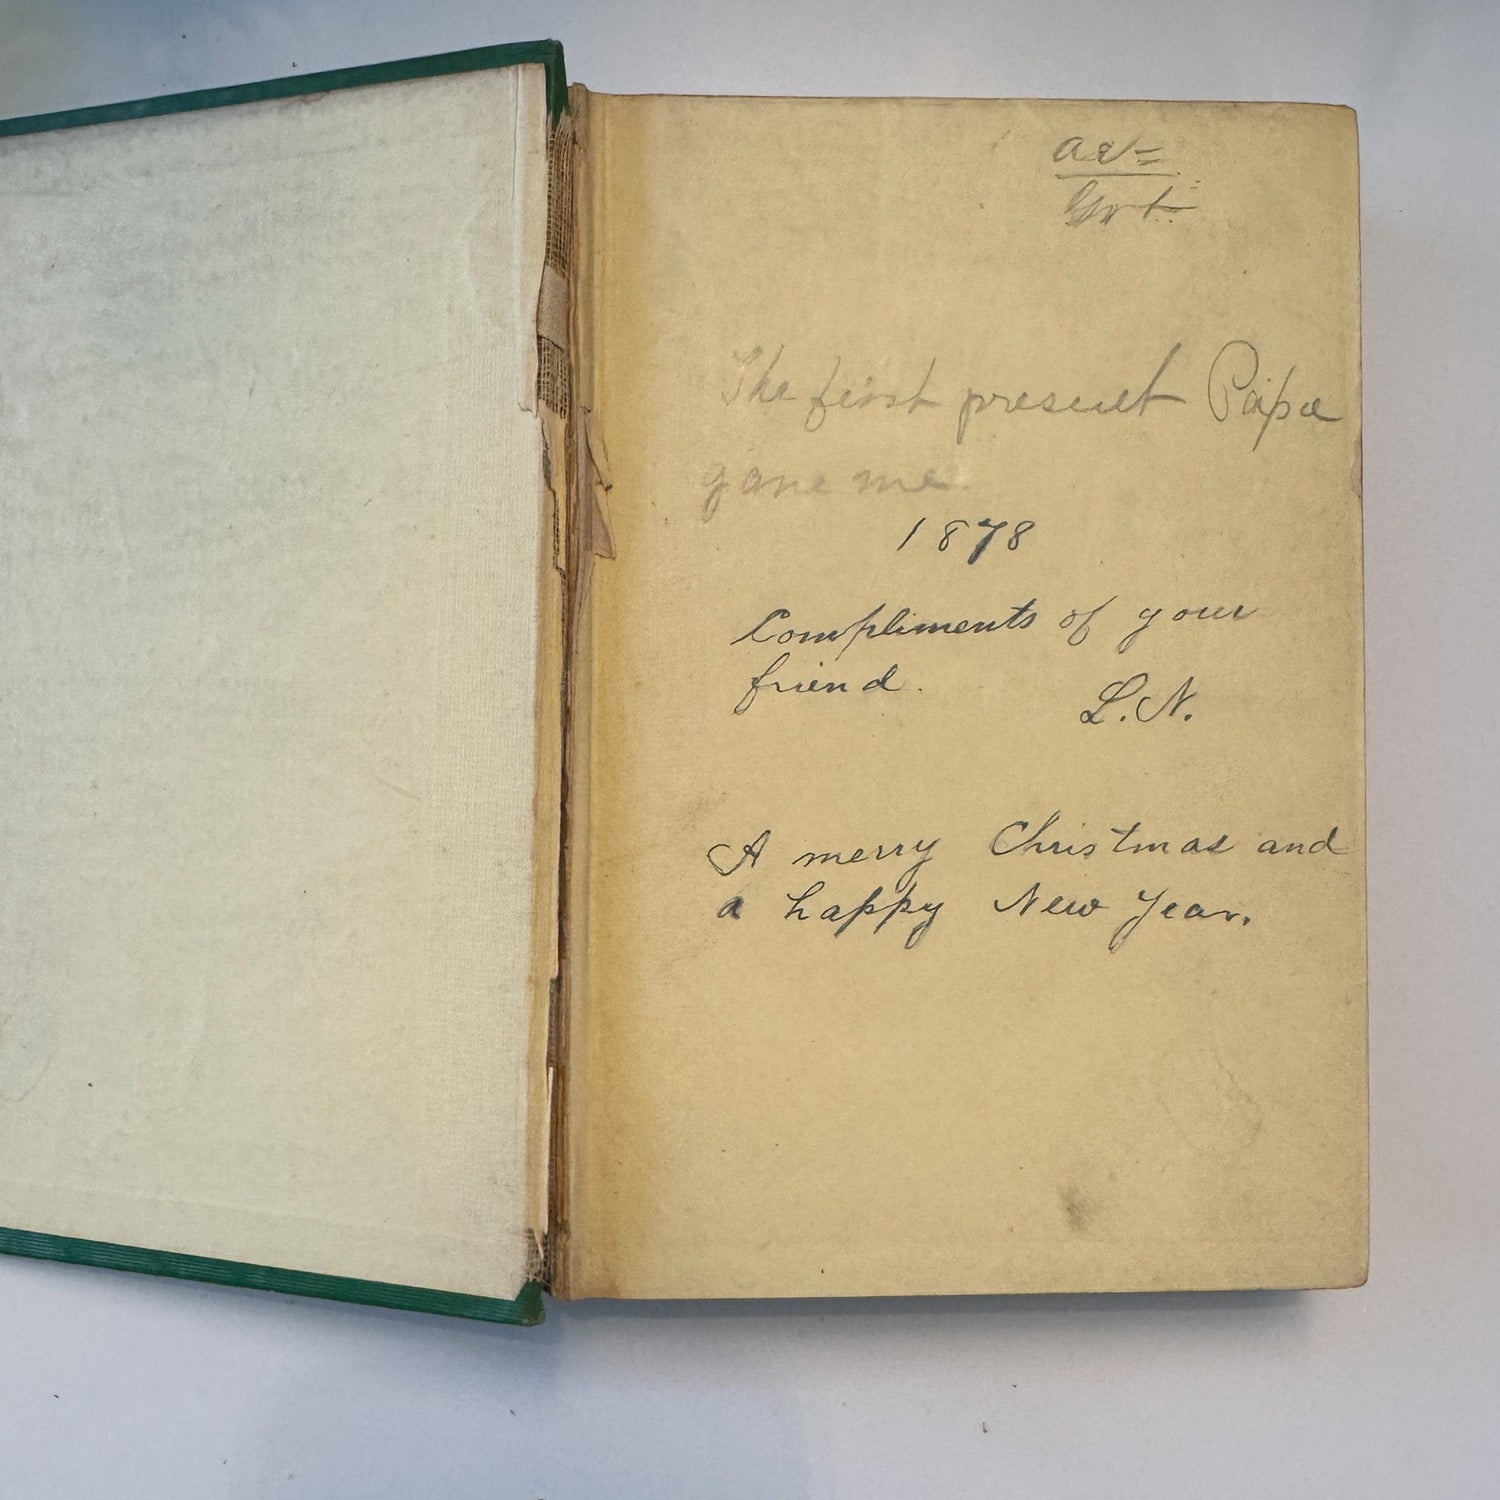 The first present Papa
gave me.
1878
Compliments of your
friend.
L.N.
A merry Christmas and
a happy New Year.